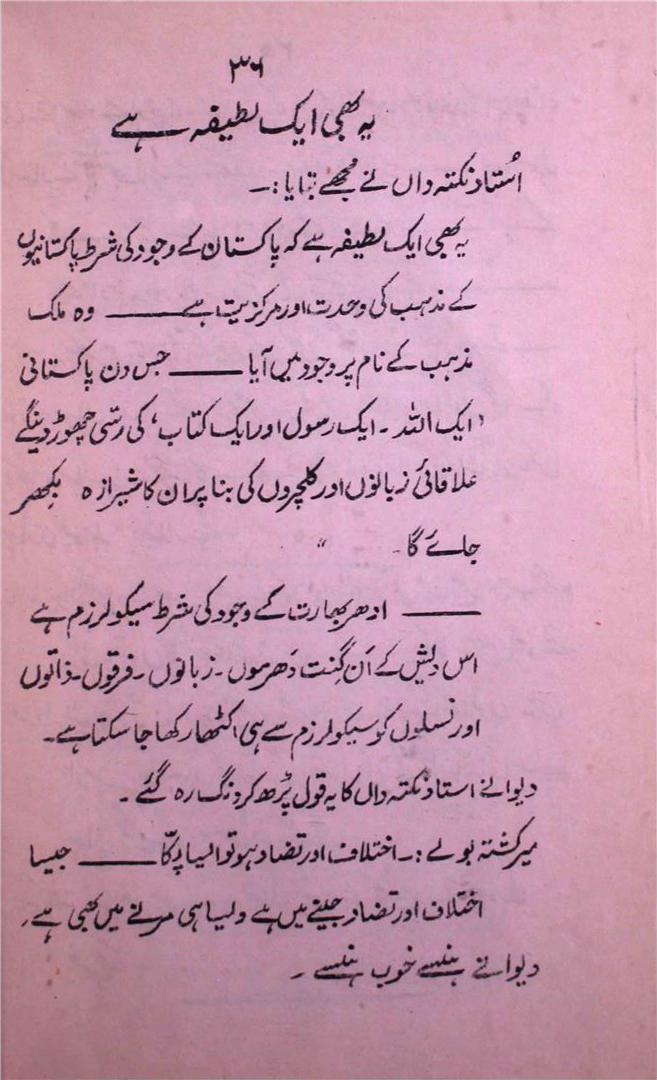 ۳۶
یہ بھی ایک لطیفہ ہے
اُستاد نکتہ داں نے مجھے بتایا:۔
یہ بھی ایک لطیفہ ہے کہ پاکستان کے وجود کی شرط پاکستانیوں
کے مذہب کی وحدت اور مرکزیت ہے ——— وہ ملک
مذہب کے نام پر وجود میں آیا ——— جس دن پاکستانی
'ایک اللہ ۔ ایک رسول اور ایک کتاب' کی رسّی چھوڑ دینگے
علاقائی زبانوں اور کلچروں کی بنا پر ان کا شیرازہ بکھر
جائے گا۔ "
——— ادھر بھارت کے وجود کی شرط سیکولرزم ہے
اس دیش کے اَن گِنت دَھرموں ۔ زبانوں ۔ فرقوں ۔ ذاتوں
اور نسلوں کو سیکولرزم سے ہی اکٹھا رکھا جا سکتا ہے۔
دیوانے استاد نکتہ داں کا یہ قول پڑھ کر دنگ رہ گئے ۔
میر گشتہ بولے :۔ اختلاف اور تضاد ہو تو ایسا پکّا ——— جیسا
اختلاف اور تضاد جینے میں ہے ویسا ہی مرنے میں بھی ہے ،
دیوانے ہنسے خوب ہنسے ۔